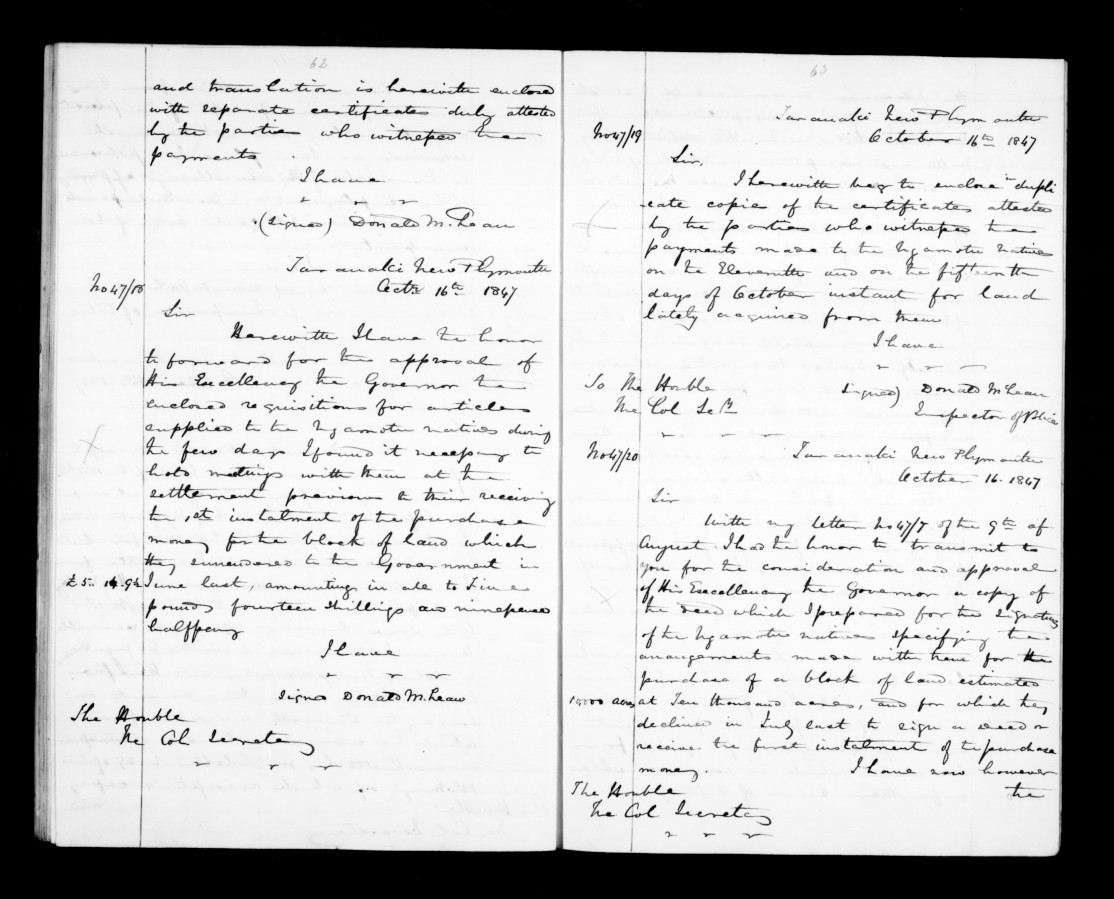 62
and translation is herewith enclosed
with separate certificates duly attested
by the parties who witnessed the
payments.
I have
" " "
(signed) Donald McLean
Taranaki New Plymouth
Octr 16th 1847
No 47/18
Sir
Herewith I have the honor
to forward for the approval of
His Excellency the Governor the
enclosed requisitions for articles
supplied to the Ngamotu natives during
the few days I found it necessary to
hold meetings with them at the
settlement previous to their receiving
the 1st instalment of the purchase
money for the block of land which
they surrendered to the Government in
£5. 14. 9½ June last, amounting in all to Five
pounds fourteen shillings and ninepence
halfpenny
I have
" " "
signed Donald McLean
The Honble
The Col Secretary
" " "
63
Taranaki New Plymouth
No 47/19
October 16th 1847
Sir,
I herewith beg to enclose dupli
cate copies of the certificates attested
by the parties who witnessed the
payments made to the Ngamotu natives
on the Eleventh and on the fifteenth
days of October instant for land
lately acquired from them
I have
" " "
To The Honble
signed) Donald McLean
The Col Secy
Inspector of Police
" " "
No 47/20
Taranaki New Plymouth
October 16. 1847
Sir
With my letter No 47/7 of the 9th of
August I had the honor to transmit to
you for the consideration and approval
of His Excellency the Governor a copy of
the deed which I prepared for the signature
of the Ngamotu natives specifying the
arrangements made with them for the
purchase of a block of land estimated
10,000 acres at Ten thousand acres, and for which they
declined in July last to sign a deed or
receive the first instalment of the purchase
money. I have now however
The Honble
the
The Col Secretary
" " "